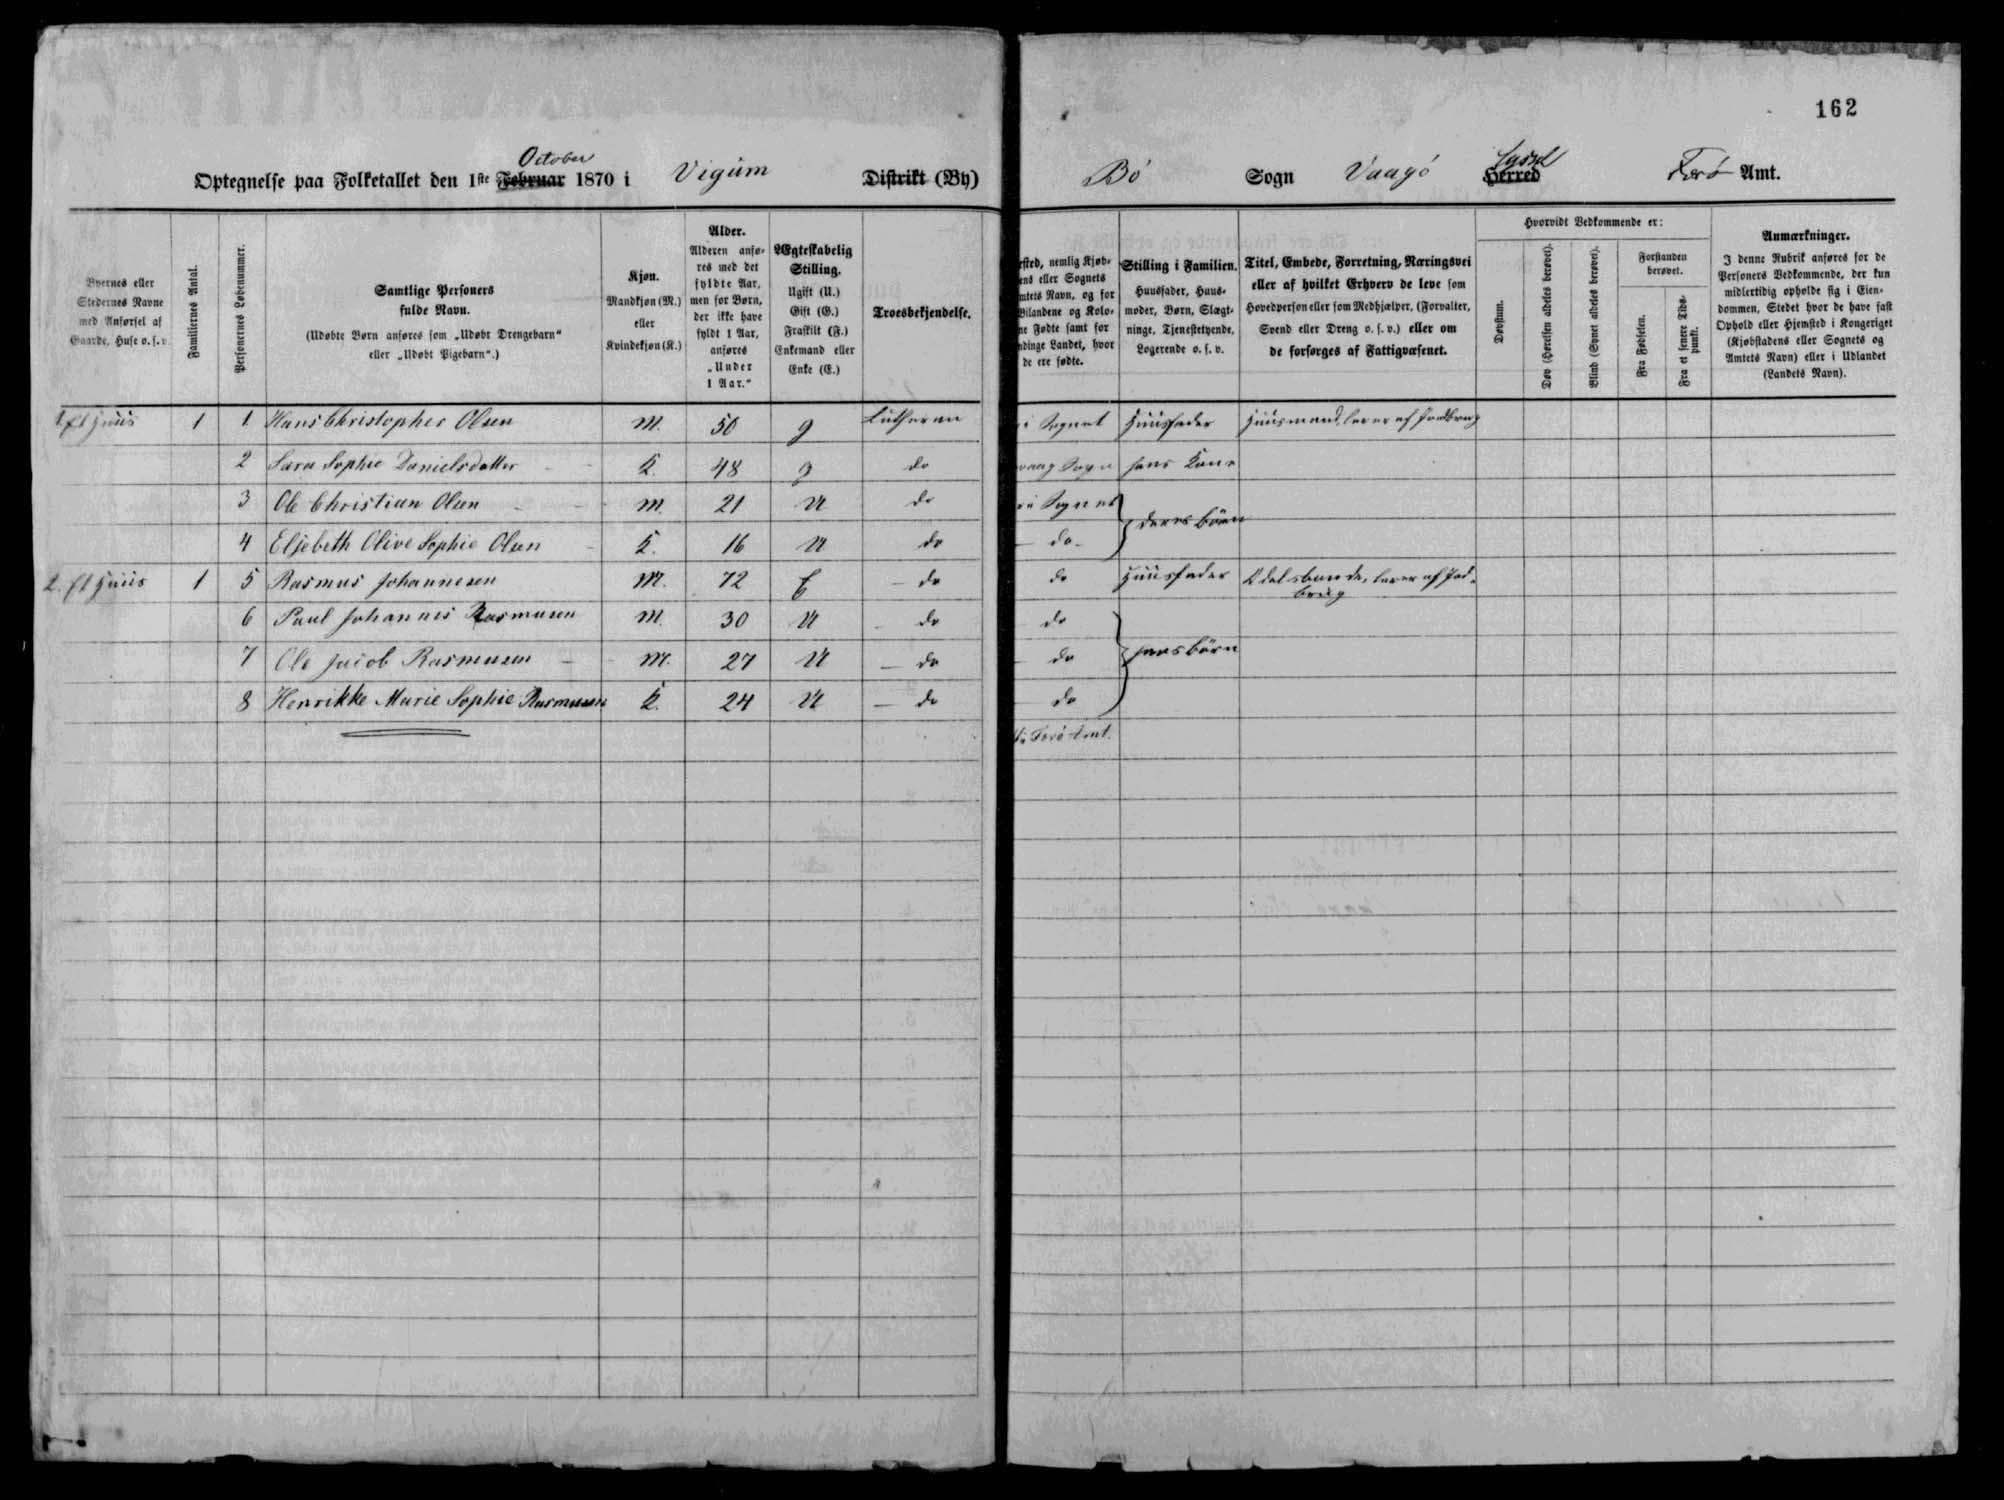 162
Optegnelse paa Folketallet den 1ste Februar October 1870 i Vigum Distrikt (By) Bö Sogn Vaagö Herred Syssel Færö Amt.
Byernes eller Stedernes Navne med Anførsel af Gaarde, Huse o. s. v.
Familiernes Antal.
Personernes Løbenummer.
Samtlige Personers fulde Navn.
(Udøbte Børn anføres som „Udøbt Drengebarn" eller „Udøbt Pigebarn".)
Kjøn.
Mandkjøn (M.) eller Kvindekjøn (K.)
Alder.
Alderen anføres med det fyldte Aar, men for Børn, der ikke have fyldt 1 Aar, anføres „Under 1 Aar."
Ægteskabelig Stilling.
Ugift (U.) Gift (G.) Fraskilt (F.) Enkemand eller Enke (E.)
Troesbekjendelse.
ested, nemlig Kjøb-
ens eller Sognets
mtets Navn, og for
Bilandene og Kolo-
ne Fødte samt for
ndinge Landet, hvor
de ere fødte.
Stilling i Familien.
Huusfader, Huusmoder, Børn, Slægtninge, Tjenestetyende, Logerende o. s. v.
Titel, Embede, Forretning, Næringsvei eller af hvilket Erhverv de leve som Hovedperson eller som Medhjælper, (Forvalter, Svend eller Dreng o. s. v.) eller om de forsørges af Fattigvæsenet.
Hvorvidt Vedkommende er:
Døvstum.
Døv (Hørelsen aldeles berøvet).
Blind (Synet aldeles berøvet).
Forstanden berøvet.
Fra Fødselen.
Fra et senere Tidspunkt.
Anmærkninger.
I denne Rubrik anføres for de Personers Vedkommende, der kun midlertidig opholde sig i Eiendommen, Stedet hvor de have fast Ophold eller Hjemsted i Kongeriget (Kjøbstadens eller Sognets og Amtets Navn) eller i Udlandet (Landets Navn).
1. Et Huus 1 1 Hans Christopher Olsen M. 50 g Lutheran i Sognet Huusfader Huusmand, lever af Jordbrug
2 Sara Sophie Danielsdatter K. 48 g do vaag Sogn hans Kone
3 Ole Christian Olsen M. 21 U do i Sognet } deres Börn
4 Elsebeth Olive Sophie Olsen K. 16 U do do
2. Et Huus 1 5 Rasmus Johannesen M. 72 E do do Huusfader Odelsbonde, lever af Jordbrug
6 Paul Johannes Rasmusen M. 30 U do do } hans Börn
7 Ole Jacob Rasmusen M. 27 U do do
8 Henrikke Marie Sophie Rasmusen K. 24 U do do
Færö Amt.